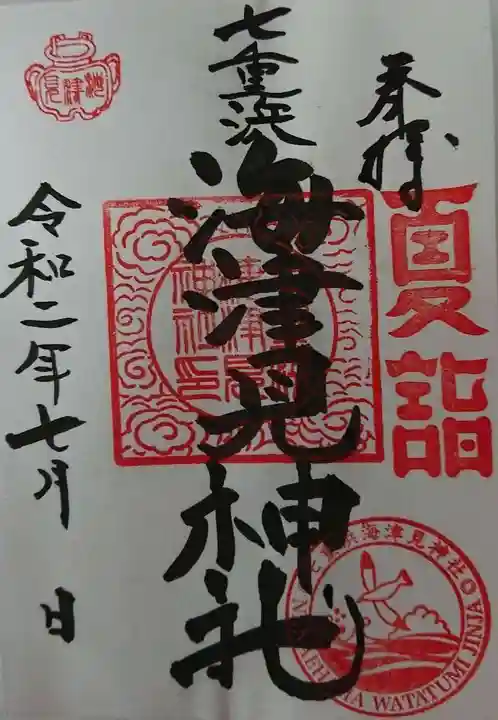 奉拝
夏詣
七重浜
海津見神社
令和二年七月 日
海津見
海津見神社印
七重浜海津見神社
NANAEHAMA WATATUMI JINJA